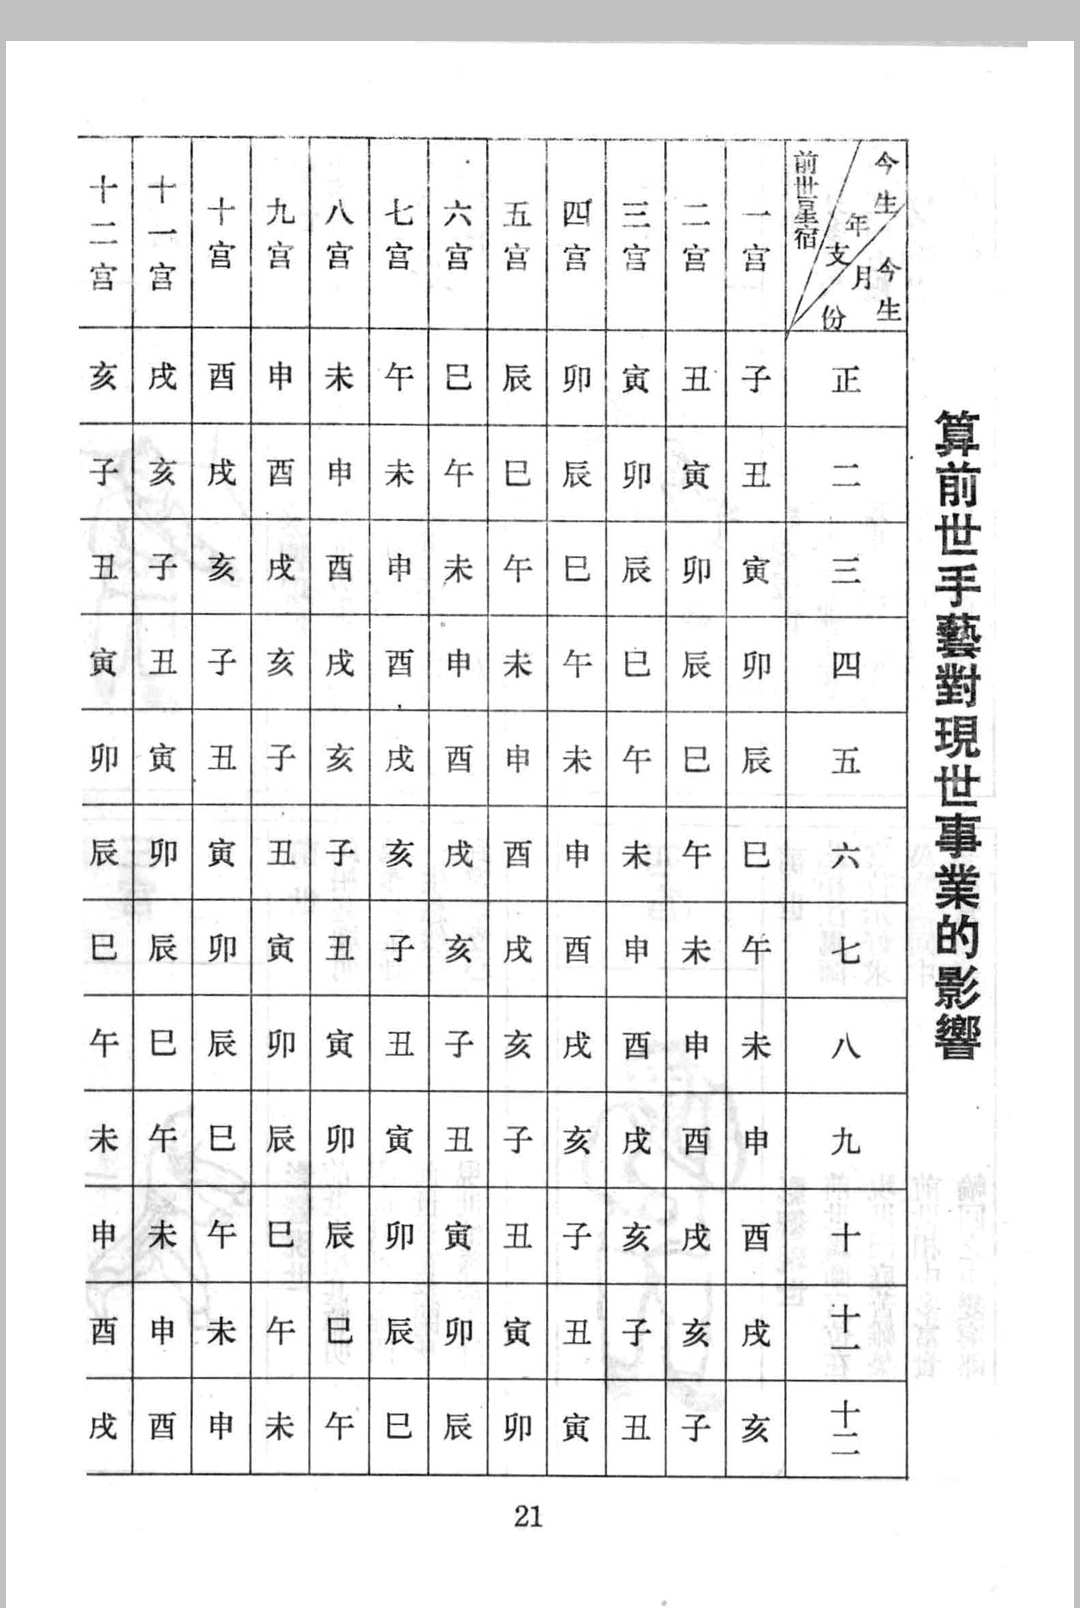 算前世手藝對現世事業的影響
今生年支
今生月份
前世星宿
一宮 二宮 三宮 四宮 五宮 六宮 七宮 八宮 九宮 十宮 十一宮 十二宮
正 子 丑 寅 卯 辰 巳 午 未 申 酉 戌 亥
二 丑 寅 卯 辰 巳 午 未 申 酉 戌 亥 子
三 寅 卯 辰 巳 午 未 申 酉 戌 亥 子 丑
四 卯 辰 巳 午 未 申 酉 戌 亥 子 丑 寅
五 辰 巳 午 未 申 酉 戌 亥 子 丑 寅 卯
六 巳 午 未 申 酉 戌 亥 子 丑 寅 卯 辰
七 午 未 申 酉 戌 亥 子 丑 寅 卯 辰 巳
八 未 申 酉 戌 亥 子 丑 寅 卯 辰 巳 午
九 申 酉 戌 亥 子 丑 寅 卯 辰 巳 午 未
十 酉 戌 亥 子 丑 寅 卯 辰 巳 午 未 申
十一 戌 亥 子 丑 寅 卯 辰 巳 午 未 申 酉
十二 亥 子 丑 寅 卯 辰 巳 午 未 申 酉 戌
21